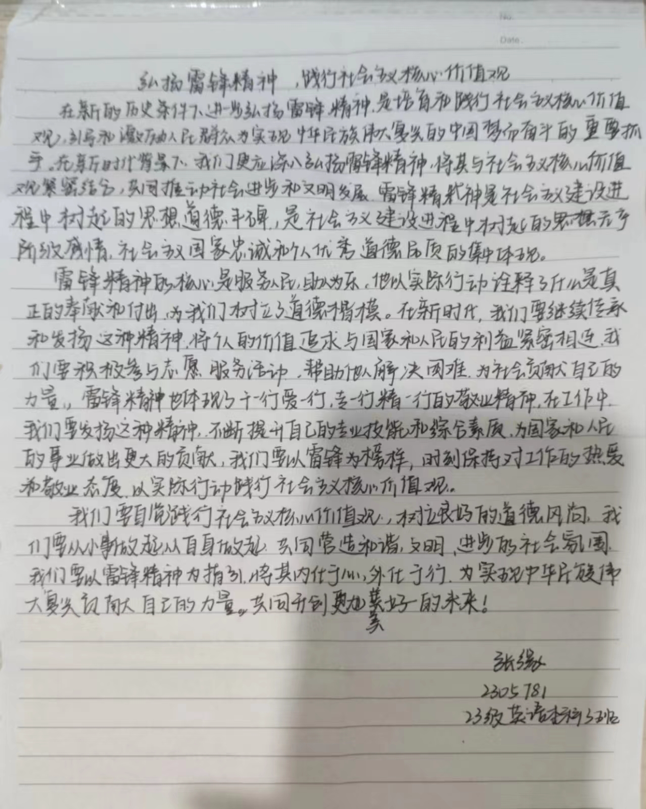 No.
Date.
弘扬雷锋精神,践行社会主义核心价值观
在新的历史条件下,进步弘扬雷锋精神,是培育和践行社会主义核心价值
观,引导和激励人民群众为实现中华民族伟大复兴的中国梦而奋斗的重要抓
手。在新时代背景下,我们更应深入弘扬雷锋精神,将其与社会主义核心价值
观紧紧结合,共同推动社会进步和文明发展。雷锋精神是社会主义建设进
程中树起的思想道德丰碑,是社会主义建设进程中树起的思想
阶级感情、社会主义国家忠诚和个人优秀道德品质的集中体现。
雷锋精神的核心是服务人民,助人为乐,他以实际行动诠释了什么是真
正的奉献和付出,为我们树立了道德楷模。在新时代,我们要继续传承
和发扬这种精神,将个人的价值追求与国家和人民的利益紧密相连,我
们要积极参与志愿服务活动,帮助他人解决困难,为社会贡献自己的
力量。雷锋精神也体现了干一行爱一行,专一行精一行的敬业精神,在工作中
我们要发扬这种精神,不断提升自己的专业技能和综合素质,为国家和人民
的事业做出更大的贡献,我们要以雷锋为榜样,时刻保持对工作的热爱
和敬业态度,以实际行动践行社会主义核心价值观。
我们要自觉践行社会主义核心价值观,树立良好的道德风尚,我
们要从小事做起从自身做起,共同营造和谐、文明、进步的社会氛围,
我们要以雷锋精神为指引,将其内化于心,外化于行,为实现中华民族伟
大复兴贡献自己的力量。共同开创更加美好的未来!
美
张缘
2305781
23级英语本科3班